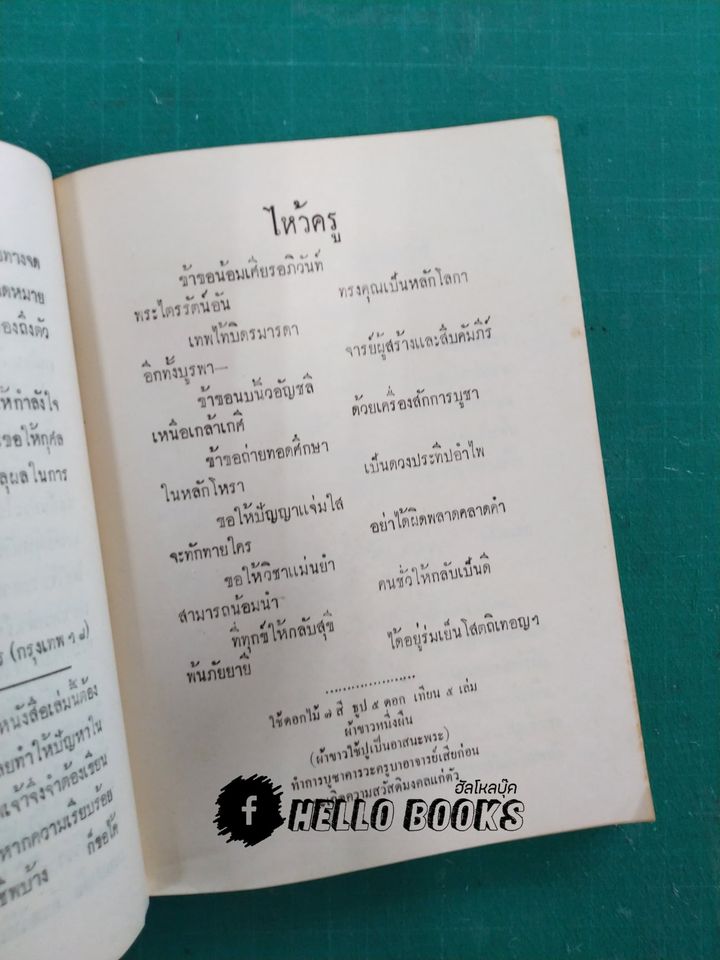 ยทวงจด
ดหมาย
องถึงตัว
ห้กำลังใจ
ขอให้กุศล
ลุผลในการ
ร (กรุงเทพฯ ๘)
หนังสือเล่มนี้ต้อง
ยทำให้ปัญหาใน
เจ้าจึงจำต้องเขียน
หากความเรียบร้อย
ชีพบ้าง ก็ขอได้
ไหว้ครู
ข้าขอน้อมเศียรอภิวันท์
พระไตรรัตน์อัน ทรงคุณเป็นหลักโลกา
เทพไท้บิดรมารดา
อีกทั้งบูรพา— จารย์ผู้สร้างและสืบคัมภีร์
ข้าขอนบนิ้วอัญชลี
เหนือเกล้าเกศี ด้วยเครื่องสักการบูชา
ข้าขอถ่ายทอดศึกษา
ในหลักโหรา เป็นดวงประทีปอำไพ
ขอให้ปัญญาแจ่มใส
จะทักทายใคร อย่าได้ผิดพลาดคลาดคำ
ขอให้วิชาแม่นยำ
สามารถน้อมนำ คนชั่วให้กลับเป็นดี
ที่ทุกข์ให้กลับสุขี
พ้นภัยยายี ได้อยู่ร่มเย็นโสตถิเทอญฯ
....................
ใช้ดอกไม้ ๗ สี ธูป ๕ ดอก เทียน ๕ เล่ม
ผ้าขาวหนึ่งผืน
(ผ้าขาวใช้ปูเป็นอาสนะพระ)
ทำการบูชาคารวะครูบาอาจารย์เสียก่อน
เกิดความสวัสดิมงคลแก่ตัว
ฮัลโหลบุ๊ค
f HELLO BOOKS